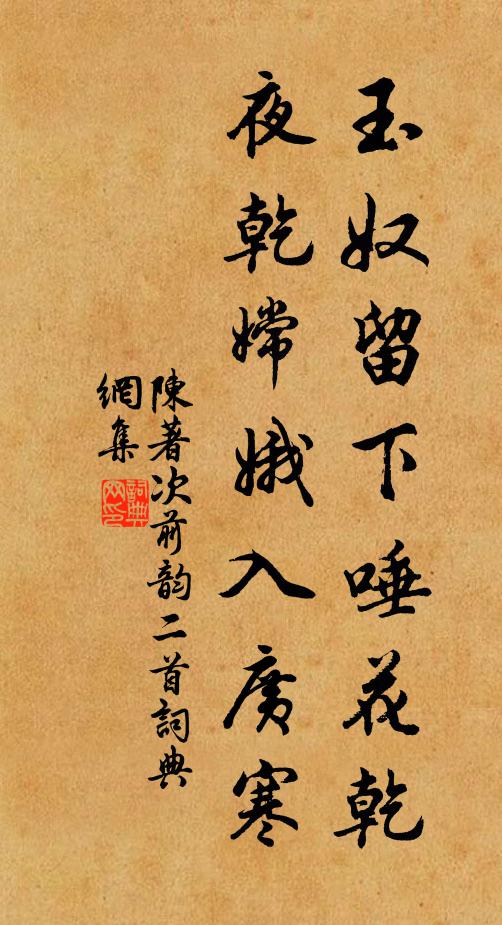 玉奴留下唾花乾
夜乾嫦娥入廣寒
陳著次前韵二首詞典
網集
詞典
网印